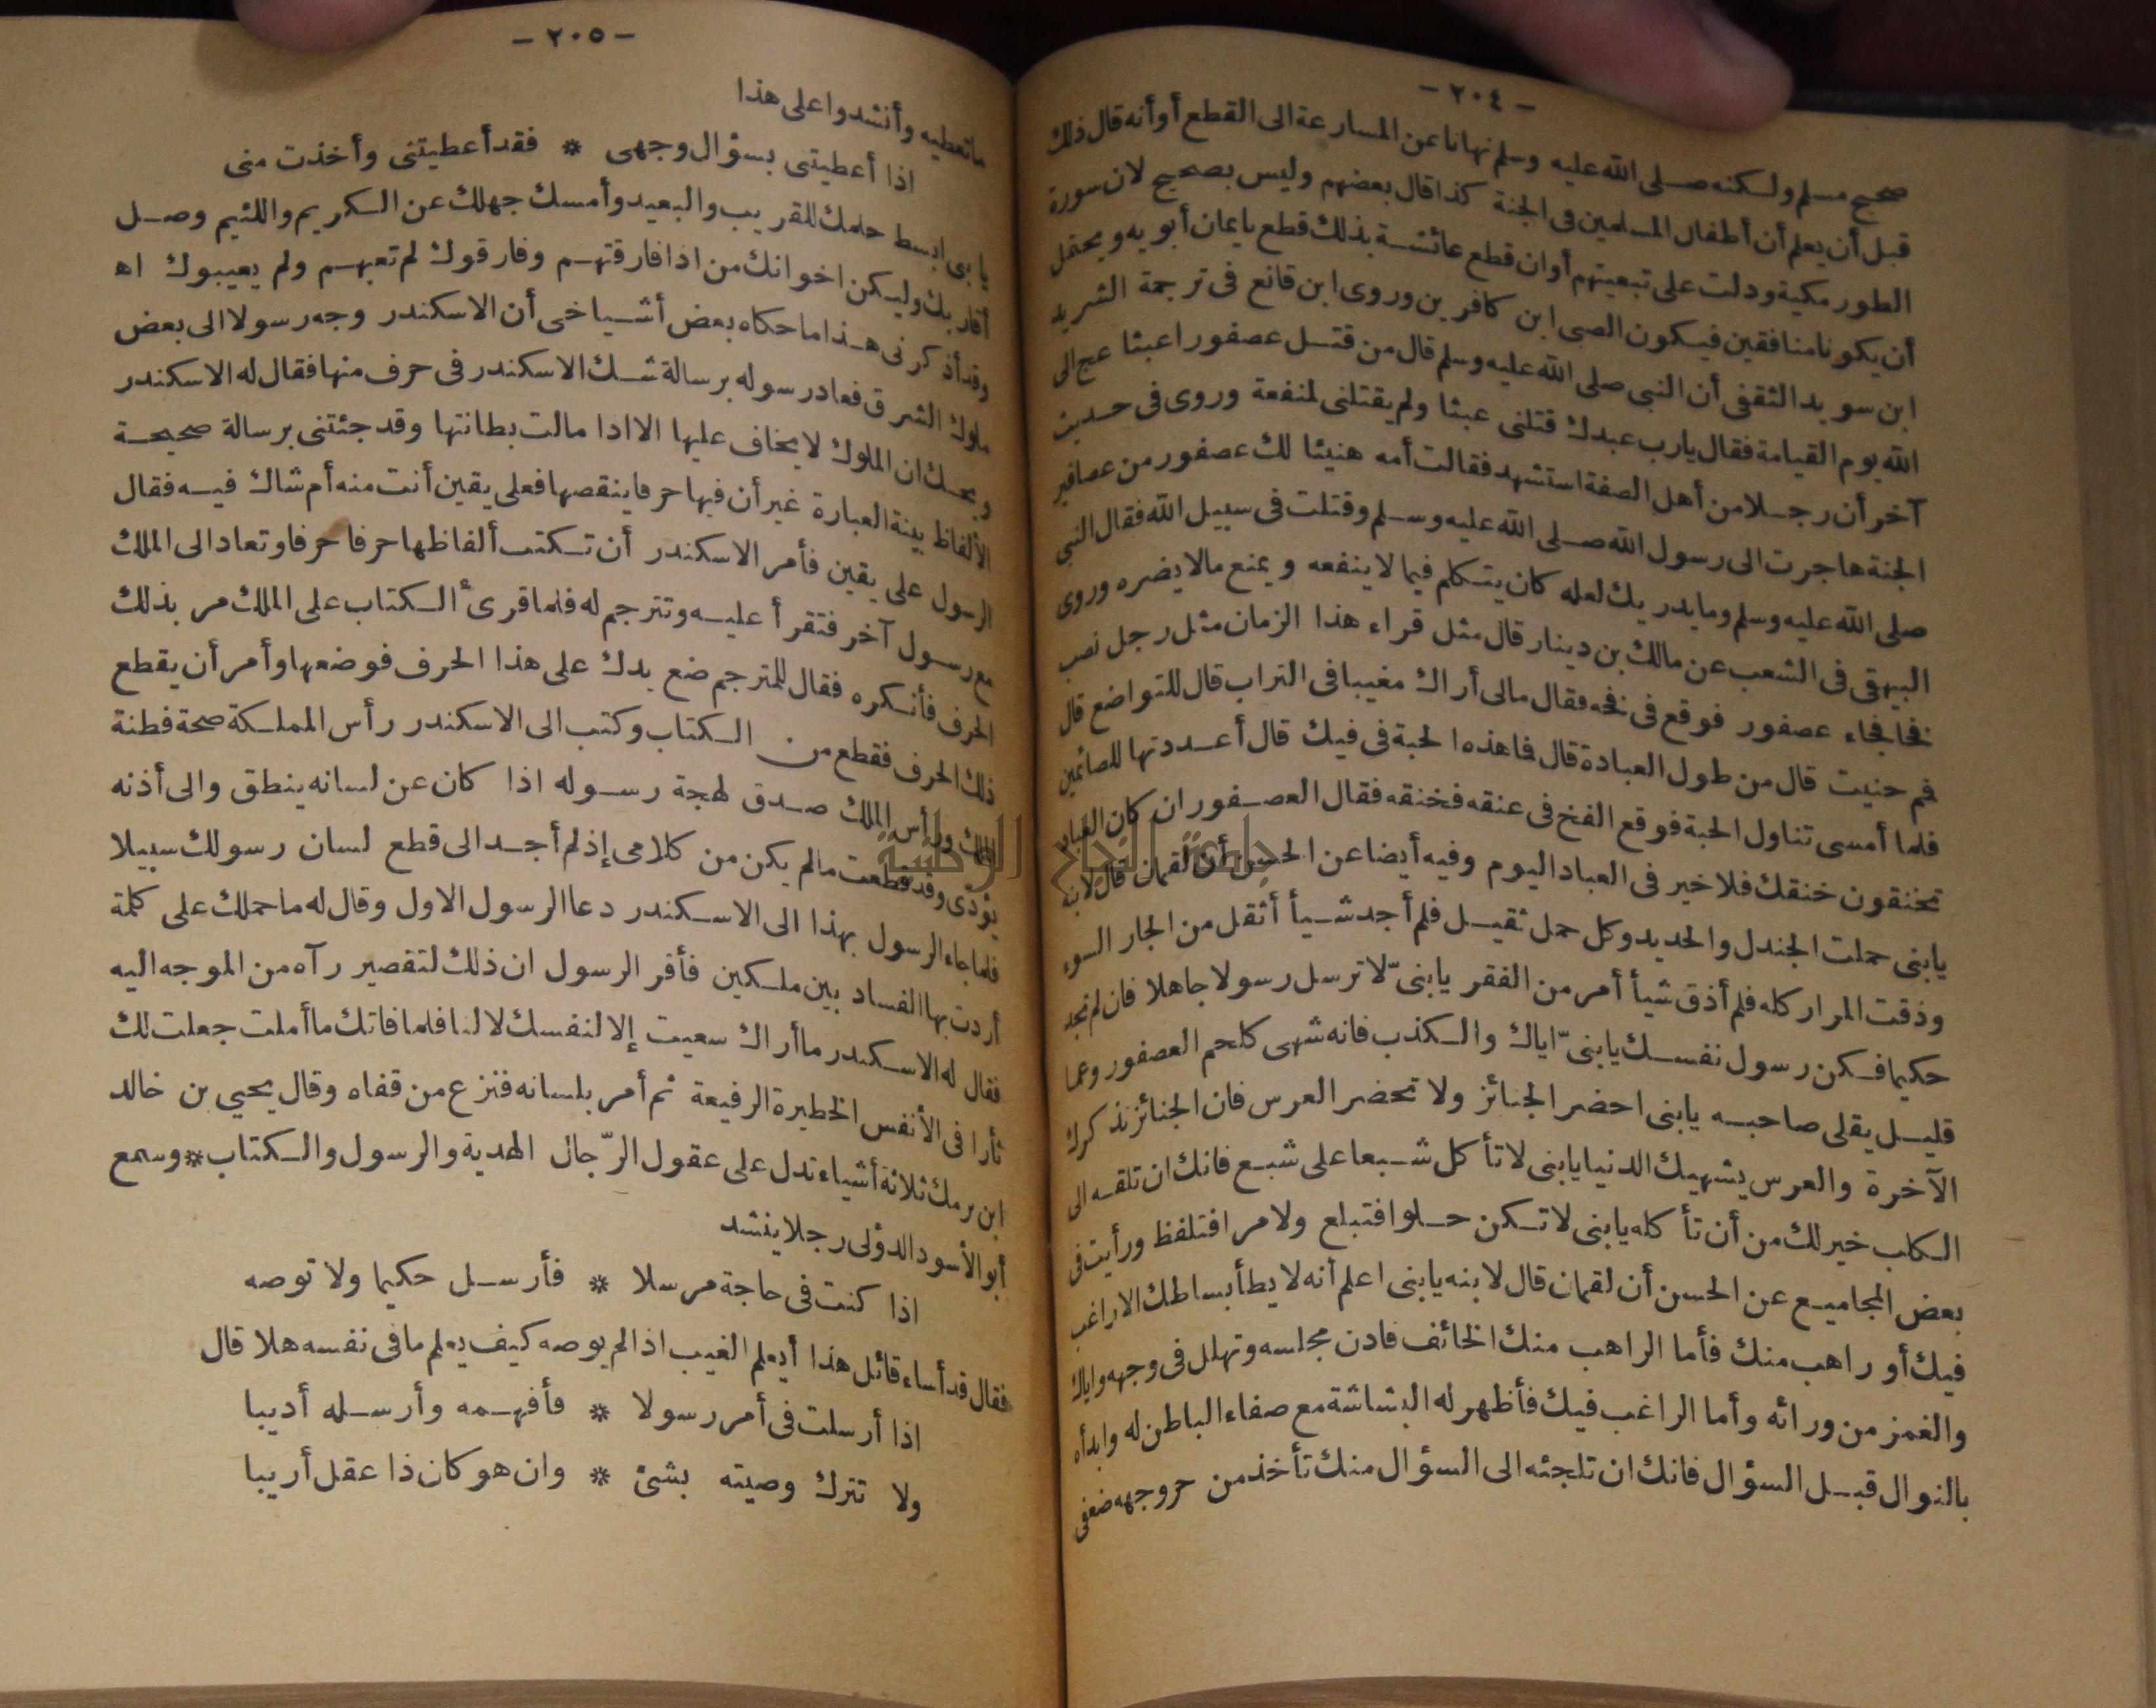 - ٢٠٤ -
صحيح مسلم ولكنه صلى الله عليه وسلم نهانا عن المسارعة الى القطع أو أنه قال ذلك
قبل أن يعلم أن أطفال المسلمين فى الجنة كذا قال بعضهم وليس بصحيح لان سورة
الطور مكية ودلت على تبعيتهم أوان قطع عائشة بذلك قطع بايمان أبويه ويحتمل
أن يكونا منافقين فيكون الصبى ابن كافرين وروى ابن قانع فى ترجمة الشريد
ابن سويد الثقفى أن النبى صلى الله عليه وسلم قال من قتل عصفورا عبثا عج الى
الله يوم القيامة فقال يارب عبدك قتلنى عبثا ولم يقتلنى لمنفعة وروى فى حديث
آخر أن رجلا من أهل الصفة استشهد فقالت أمه هنيئا لك عصفور من عصافير
الجنة هاجرت الى رسول الله صلى الله عليه وسلم وقتلت فى سبيل الله فقال النبى
صلى الله عليه وسلم وما يدريك لعله كان يتكلم فيما لا ينفعه ويمنع مالا يضره وروى
البيهقى فى الشعب عن مالك بن دينار قال مثل قراء هذا الزمان مثل رجل نصب
فخا فجاء عصفور فوقع فى فخه فقال مالى أراك مغيبا فى التراب قال للتواضع قال
فم حنيت قال من طول العبادة قال فما هذه الحبة فى فيك قال أعددتها للصائمين
فلما أمسى تناول الحبة فوقع الفخ فى عنقه فخنقه فقال العصفور ان كان العباد
تخنقون خنقك فلا خير فى العباد اليوم وفيه أيضا عن الحسن أن لقمان قال لابنه
يابنى حملت الجندل والحديد وكل حمل ثقيل فلم أجد شيأ أثقل من الجار السوء
وذقت المرار كله فلم أذق شيأ أمر من الفقر يابنىّ لا ترسل رسولا جاهلا فان لم تجد
حكيما فكن رسول نفسك يابنىّ اياك والكذب فانه شهى كلحم العصفور وعما
قليل يقلى صاحبه يابنى احضر الجنائز ولا تحضر العرس فان الجنائز تذكرك
الآخرة والعرس يشهيك الدنيا يابنى لا تأكل شبعا على شبع فانك ان تلقه الى
الكلب خير لك من أن تأكله يابنى لا تكن حلوا فتبلع ولا مرا فتلفظ ورأيت فى
بعض المجاميع عن الحسن أن لقمان قال لابنه يابنى اعلم أنه لا يطأ بساطك الا راغب
فيك أو راهب منك فأما الراهب منك الخائف فادن مجلسه وتهلل فى وجهه واياك
والغمز من ورائه وأما الراغب فيك فأظهر له البشاشة مع صفاء الباطن له وابدأه
بالنوال قبل السؤال فانك ان تلجئه الى السؤال منك تأخذ من حر وجهه ضعفى
- ٢٠٥ -
ما تعطيه وأنشدوا على هذا
اذا أعطيتنى بسؤال وجهى * فقد أعطيتنى وأخذت منى
يا بنى ابسط حلمك للقريب والبعيد وأمسك جهلك عن الكريم واللئيم وصل
أقاربك وليكن اخوانك من اذا فارقتهم وفارقوك لم تعبهم ولم يعيبوك اه
وقد أذكرنى هذا ما حكاه بعض أشياخى أن الاسكندر وجه رسولا الى بعض
ملوك الشرق فعاد رسوله برسالة شك الاسكندر فى حرف منها فقال له الاسكندر
ويحك ان الملوك لا يخاف عليها الا اذا مالت بطانتها وقد جئتنى برسالة صحيحة
الألفاظ بينة العبارة غير أن فيها حرفا ينقصها فعلى يقين أنت منه أم شاك فيه فقال
الرسول على يقين فأمر الاسكندر أن تكتب ألفاظها حرفا حرفا وتعاد الى الملك
مع رسول آخر فتقرأ عليه وتترجم له فلما قرئ الكتاب على الملك مر بذلك
الحرف فأنكره فقال للمترجم ضع يدك على هذا الحرف فوضعها وأمر أن يقطع
ذلك الحرف فقطع من الكتاب وكتب الى الاسكندر رأس المملكة صحة فطنة
الملك ورأس الملك صدق لهجة رسوله اذا كان عن لسانه ينطق والى أذنه
يؤدى وقد قطعت مالم يكن من كلامى إذ لم أجد الى قطع لسان رسولك سبيلا
فلما جاء الرسول بهذا الى الاسكندر دعا الرسول الاول وقال له ما حملك على كلمة
أردت بها الفساد بين ملكين فأقر الرسول ان ذلك لتقصير رآه من الموجه اليه
فقال له الاسكندر ما أراك سعيت إلا لنفسك لا لنا فلما فاتك ما أملت جعلت لك
ثأرا فى الأنفس الخطيرة الرفيعة ثم أمر بلسانه فنزع من قفاه وقال يحيى بن خالد
ابن برمك ثلاثة أشياء تدل على عقول الرّجال الهدية والرسول والكتاب * وسمع
أبو الأسود الدؤلى رجلا ينشد
اذا كنت فى حاجة مرسلا * فأرسل حكيما ولا توصه
فقال قد أساء قائل هذا أيعلم الغيب اذا لم يوصه كيف يعلم ما فى نفسه هلا قال
اذا أرسلت فى أمر رسولا * فأفهمه وأرسله أديبا
ولا تترك وصيته بشئ * وان هو كان ذا عقل أريبا
جامعة النجاح الوطنية